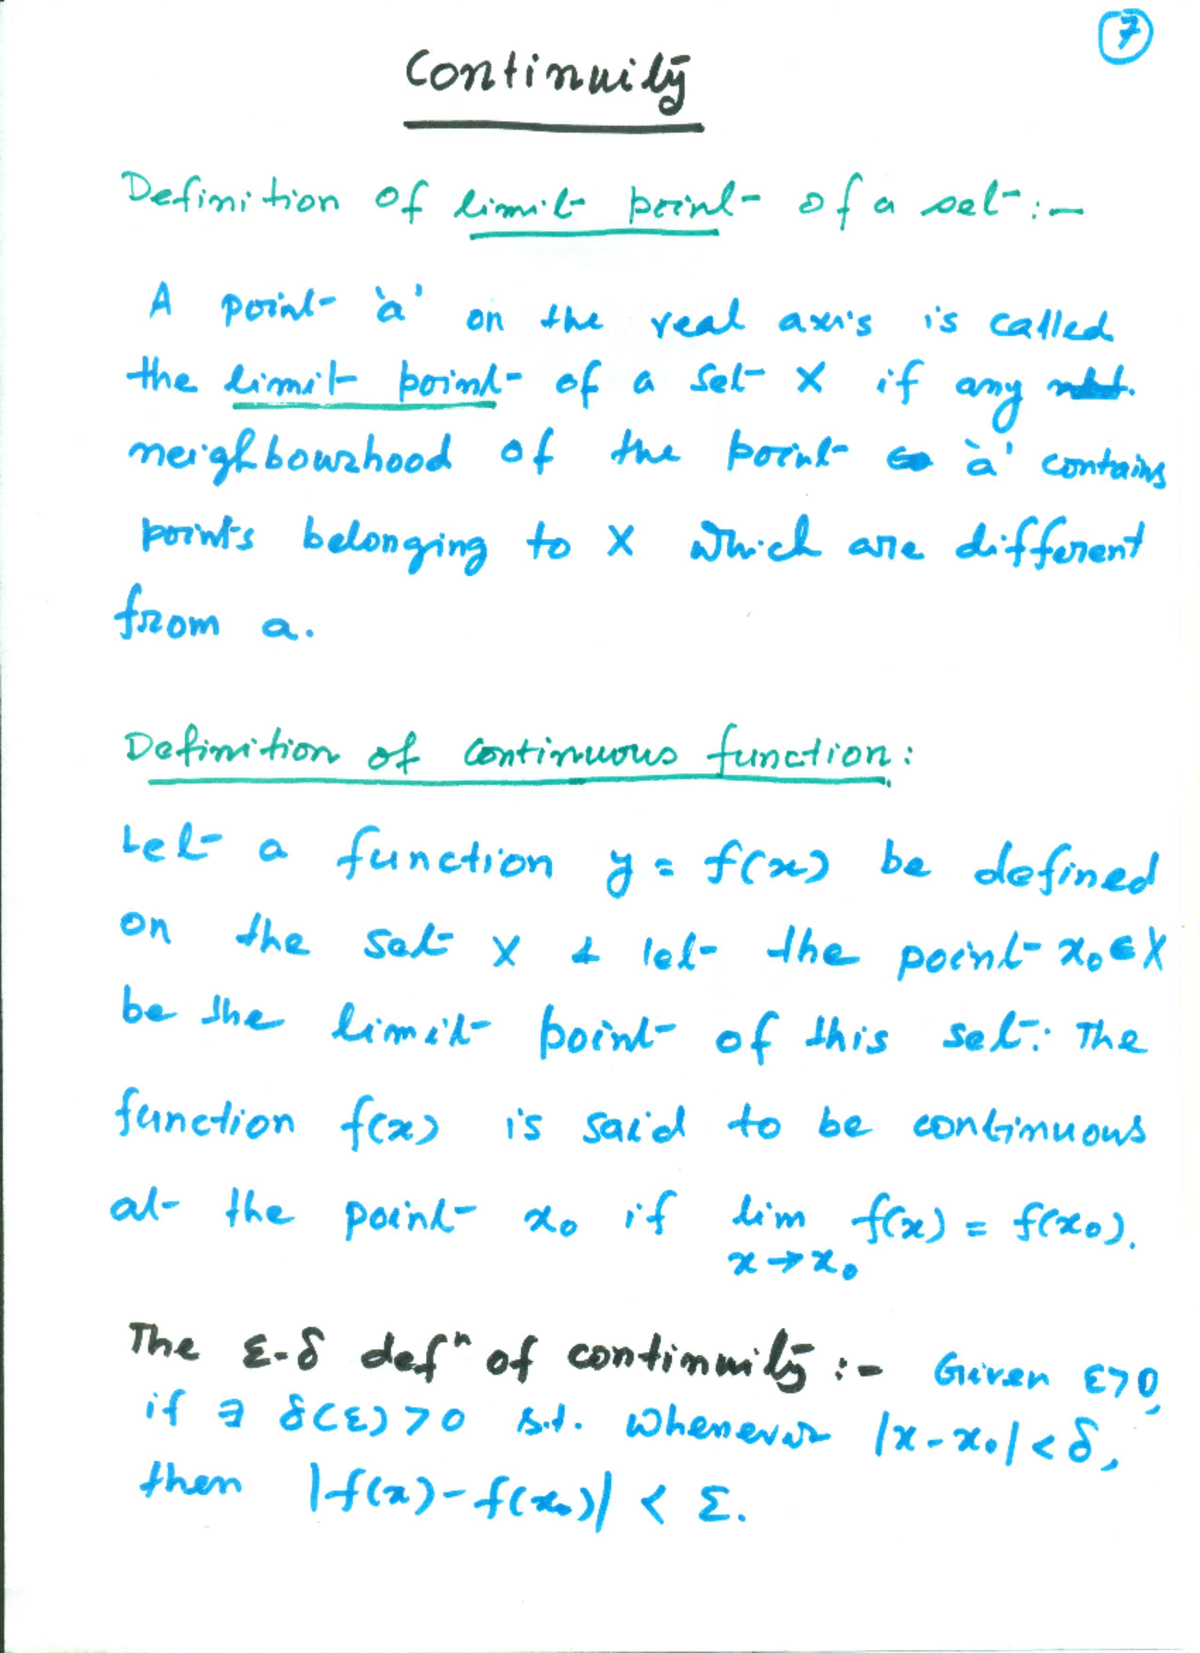 7
Continuity
Definition of limit point of a set :-
A point 'a' on the real axis is called
the limit point of a set X if any
neighbourhood of the point 'a' contains
points belonging to X which are different
from a.
Definition of continuous function:
Let a function y = f(x) be defined
on the set X & let the point x₀ ∈ X
be the limit point of this set. The
function f(x) is said to be continuous
at the point x₀ if lim f(x) = f(x₀).
x→x₀
The ε-δ defⁿ of continuity :- Given ε>0,
if ∃ δ(ε)>0 s.t. whenever |x-x₀|<δ,
then |f(x)-f(x₀)| < ε.